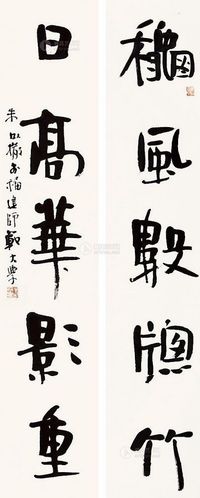 穐風數牕竹
日高華影重
朱以撒於福建師範大學